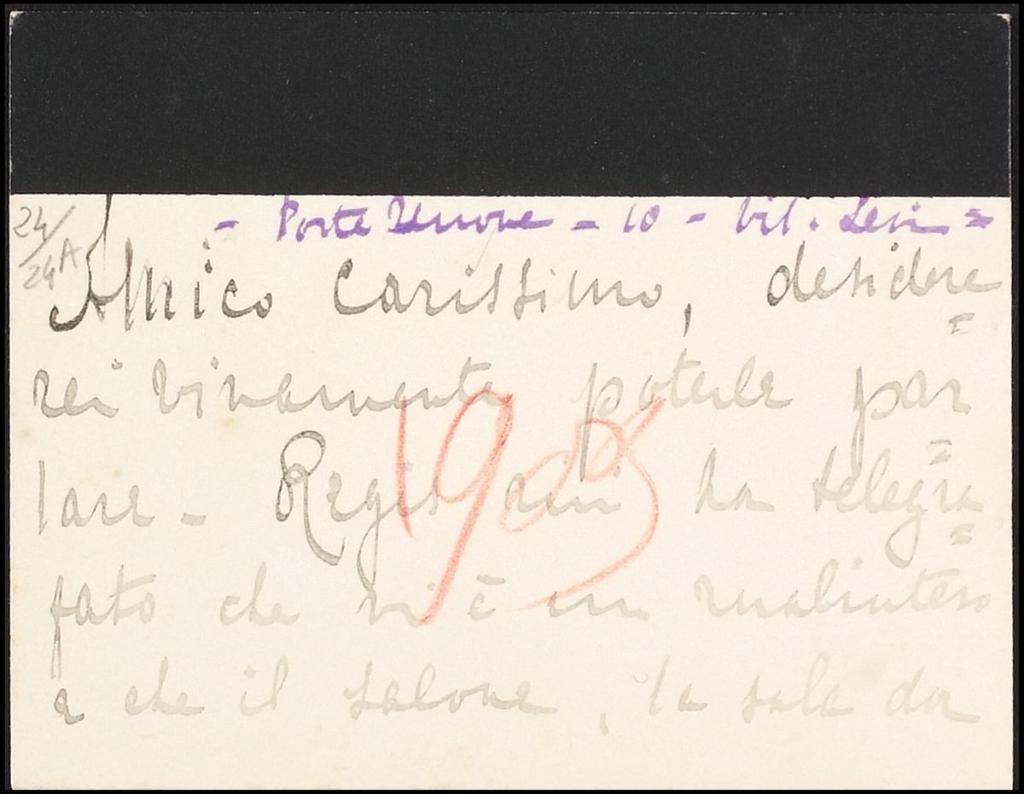 24/
24A
- Porte Nuove - 10 - Vil. Levi =
Amico carissimo, desidere
=
rei vivamente poterle par
=
lare - Regis ha telegra
=
fato che vi è un malinteso
e che il salone, la sala da
1905